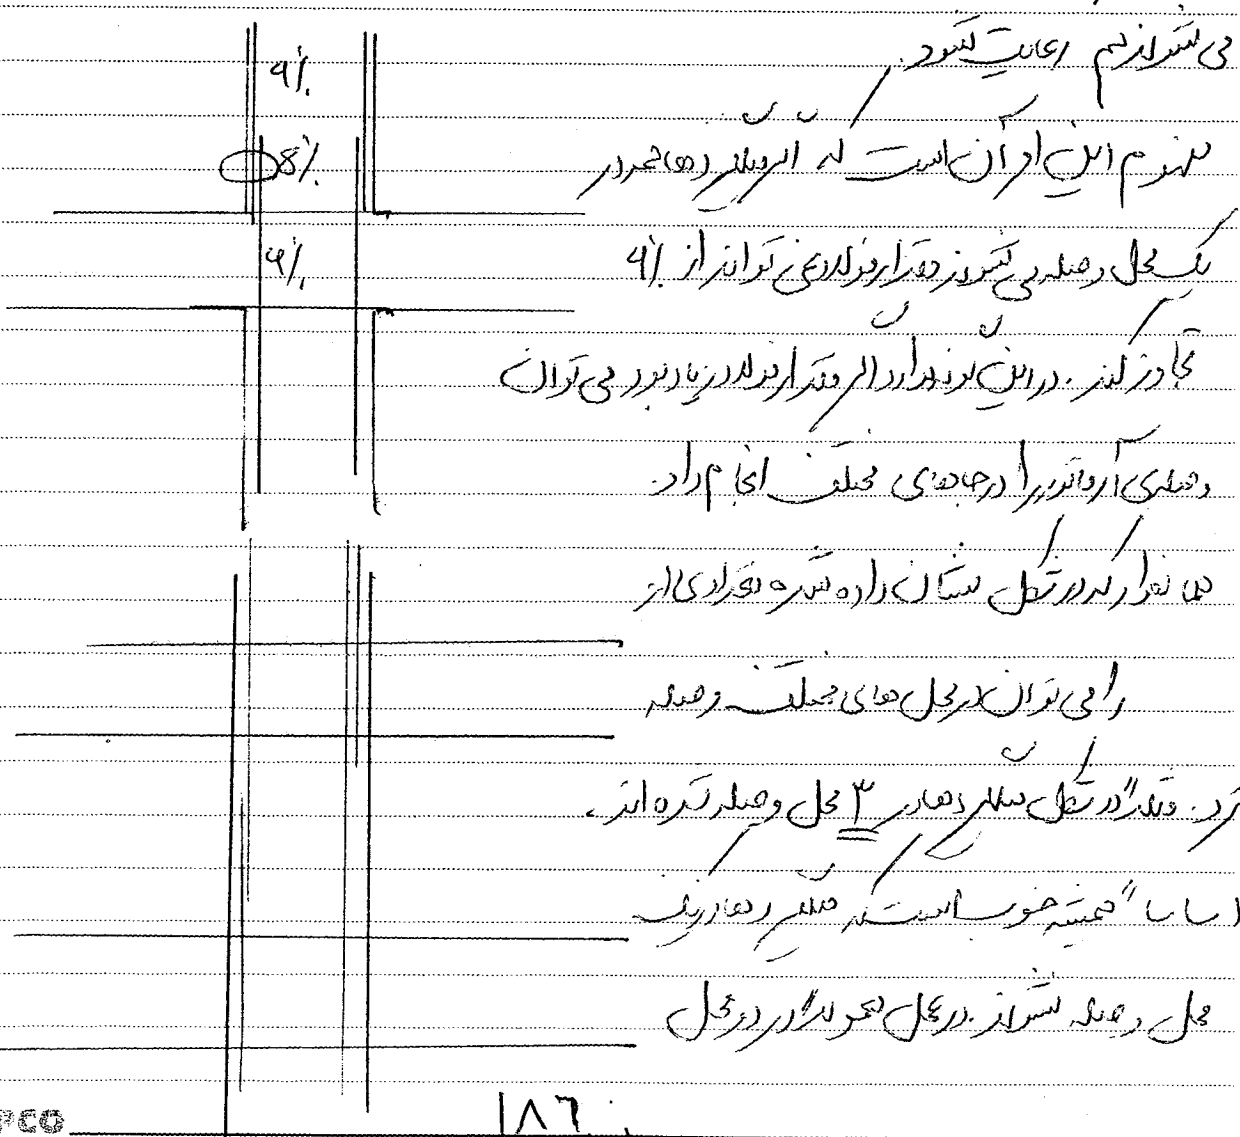 می شوند هم رعایت شود.
مفهوم این امر آن است که اگر میلگردها همه در
یک محل وصله می شوند مقدار فولاد نمی تواند از ۶٪
تجاوز کند. در این گونه موارد اگر مقدار فولاد زیاد بود می توان
وصله‌ی آرماتور را در جاهای مختلف انجام داد.
همانطور که در شکل نشان داده شده تعدادی از
را می توان در محل های مختلف وصله
کرد. مثلاً در شکل میلگردها در ۳ محل وصله شده اند.
اساساً همیشه خوب است که میلگردها در یک
محل وصله نشوند. در عمل معمولاً در دو محل
۶٪
8٪
۶٪
۱۸۶
PCO